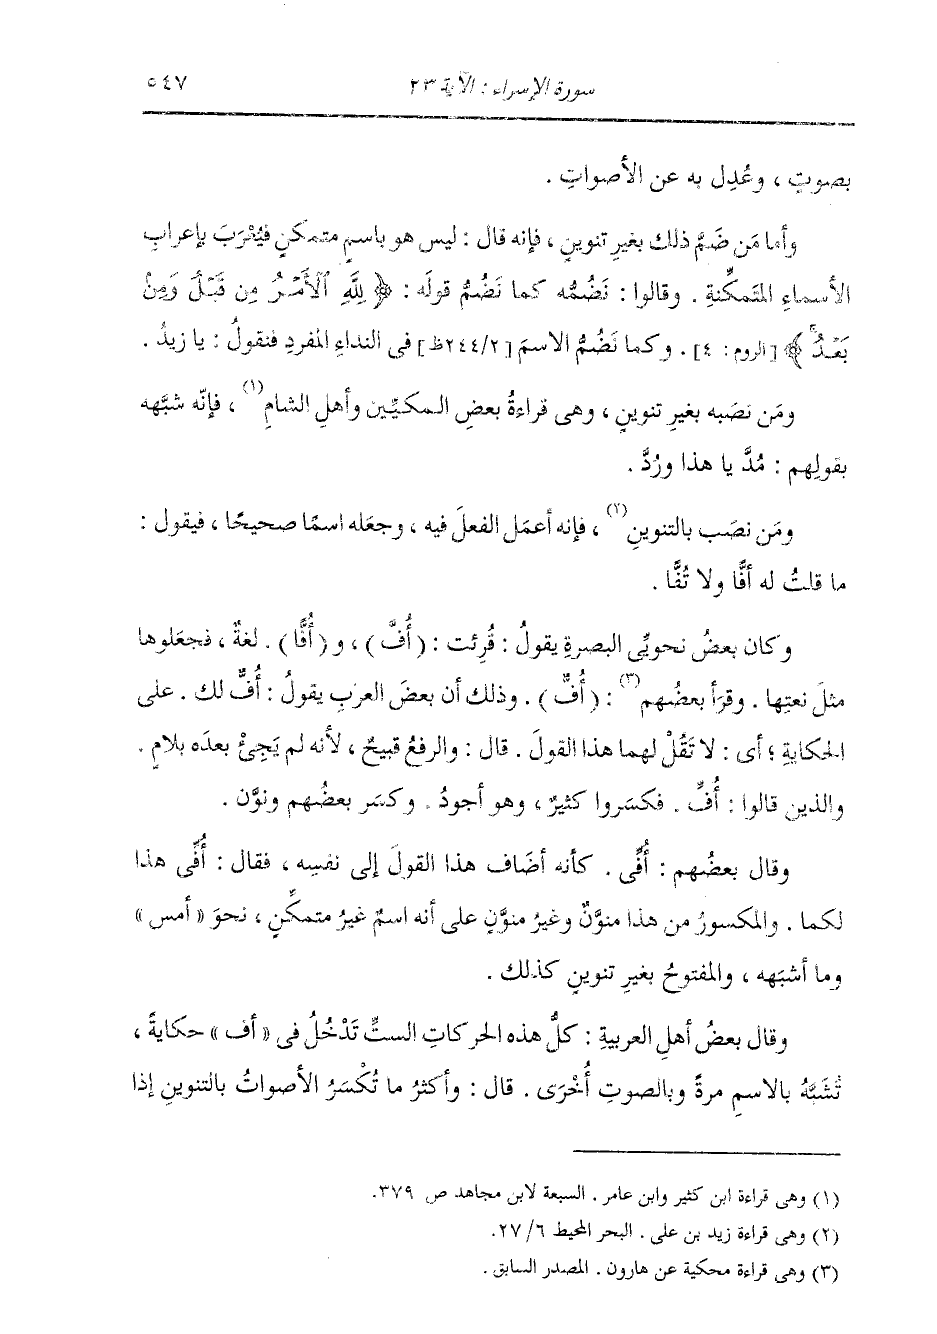 سورة الإسراء : الآية ٢٣
٥٤٧
بصوتٍ ، وعُدِل به عن الأصواتِ .
وأما مَن ضَمَّ ذلك بغيرِ تنوينٍ ، فإنه قال : ليس هو باسمٍ متمكنٍ فيُعْرَبَ بإعرابِ
الأسماءِ المتَمكِّنةِ . وقالوا : نَضُمُّه كما نَضُمُّ قولَه : ﴿ لِلَّهِ ٱلْأَمْرُ مِن قَبْلُ وَمِنۢ
بَعْدُ ﴾ [الروم: ٤] . وكما نَضُمُّ الاسمَ [٢٤٤/٢ظ] فى النداءِ المفردِ فنقولُ : يا زيدُ .
ومَن نصَبه بغيرِ تنوينٍ ، وهى قراءةُ بعضِ المكيِّين وأهلِ الشامِ(١) ، فإنّه شبَّهه
بقولِهم : مُدَّ يا هذا ورُدَّ .
ومَن نصَب بالتنوينِ(٢) ، فإنه أعمَل الفعلَ فيه ، وجعَله اسمًا صحيحًا ، فيقول :
ما قلتُ له أفًّا ولا تُفًّا .
وكان بعضُ نحويِّى البصرةِ يقولُ : قُرِئت : (أُفَّ) ، و(أُفًّا) . لغةٌ ، فجعَلوها
مثلَ نعتِها . وقرَأ بعضُهم(٣) : (أُفٌّ) . وذلك أن بعضَ العربِ يقولُ : أُفٌّ لك . على
الحكايةِ ؛ أى : لا تَقُلْ لهما هذا القولَ . قال : والرفعُ قبيحٌ ، لأنه لم يَجِئْ بعدَه بلامٍ .
والذين قالوا : أُفِّ . فكسَروا كثيرٌ ، وهو أجودُ . وكسَر بعضُهم ونوَّن .
وقال بعضُهم : أُفِّى . كأنه أضَاف هذا القولَ إلى نفسِه ، فقال : أُفِّى هذا
لكما . والمكسورُ من هذا منوَّنٌ وغيرُ منوَّنٍ على أنه اسمٌ غيرُ متمكِّنٍ ، نحوَ «أمس»
وما أشبَهه ، والمفتوحُ بغيرِ تنوينٍ كذلك .
وقال بعضُ أهلِ العربيةِ : كلُّ هذه الحركاتِ الستِّ تَدْخُلُ فى «أف» حكايةً ،
تُشَبَّهُ بالاسمِ مرةً وبالصوتِ أُخْرَى . قال : وأكثرُ ما تُكْسَرُ الأصواتُ بالتنوينِ إذا
(١) وهى قراءة ابن كثير وابن عامر . السبعة لابن مجاهد ص ٣٧٩.
(٢) وهى قراءة زيد بن على . البحر المحيط ٢٧/٦.
(٣) وهى قراءة محكية عن هارون . المصدر السابق .